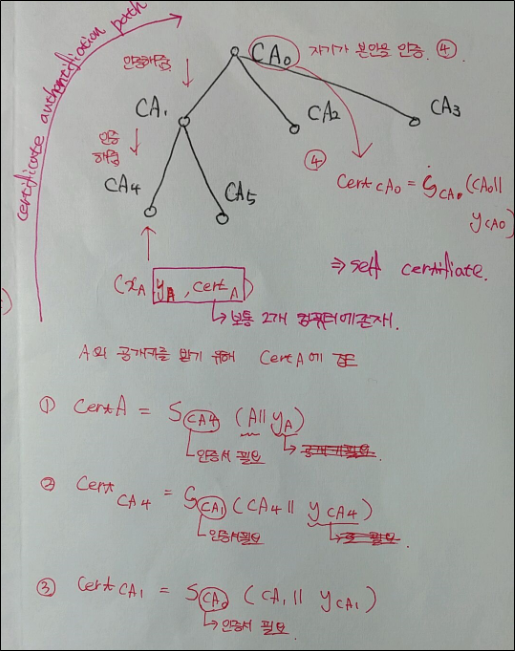 certificate authentification path
CA₀ 자기가 본인을 인증. ④
인증해줌
CA₁
CA₂
CA₃
인증
해줌
④ Cert CA₀ = S CA₀ (CA₀||
y CA₀)
CA₄
CA₅
⇒ self certifiate.
(x_A, y_A, cert_A)
→ 보통 2개 컴퓨터에 존재.
A의 공개키를 받기 위해 Cert A에 접근
① Cert A = S CA₄ (A || y_A)
인증서 필요
공개키 필요.
② Cert CA₄ = S CA₁ (CA₄ || y CA₄)
인증서 필요
필요.
③ Cert CA₁ = S CA₀ (CA₁ || y CA₁)
→ 인증서 필요.